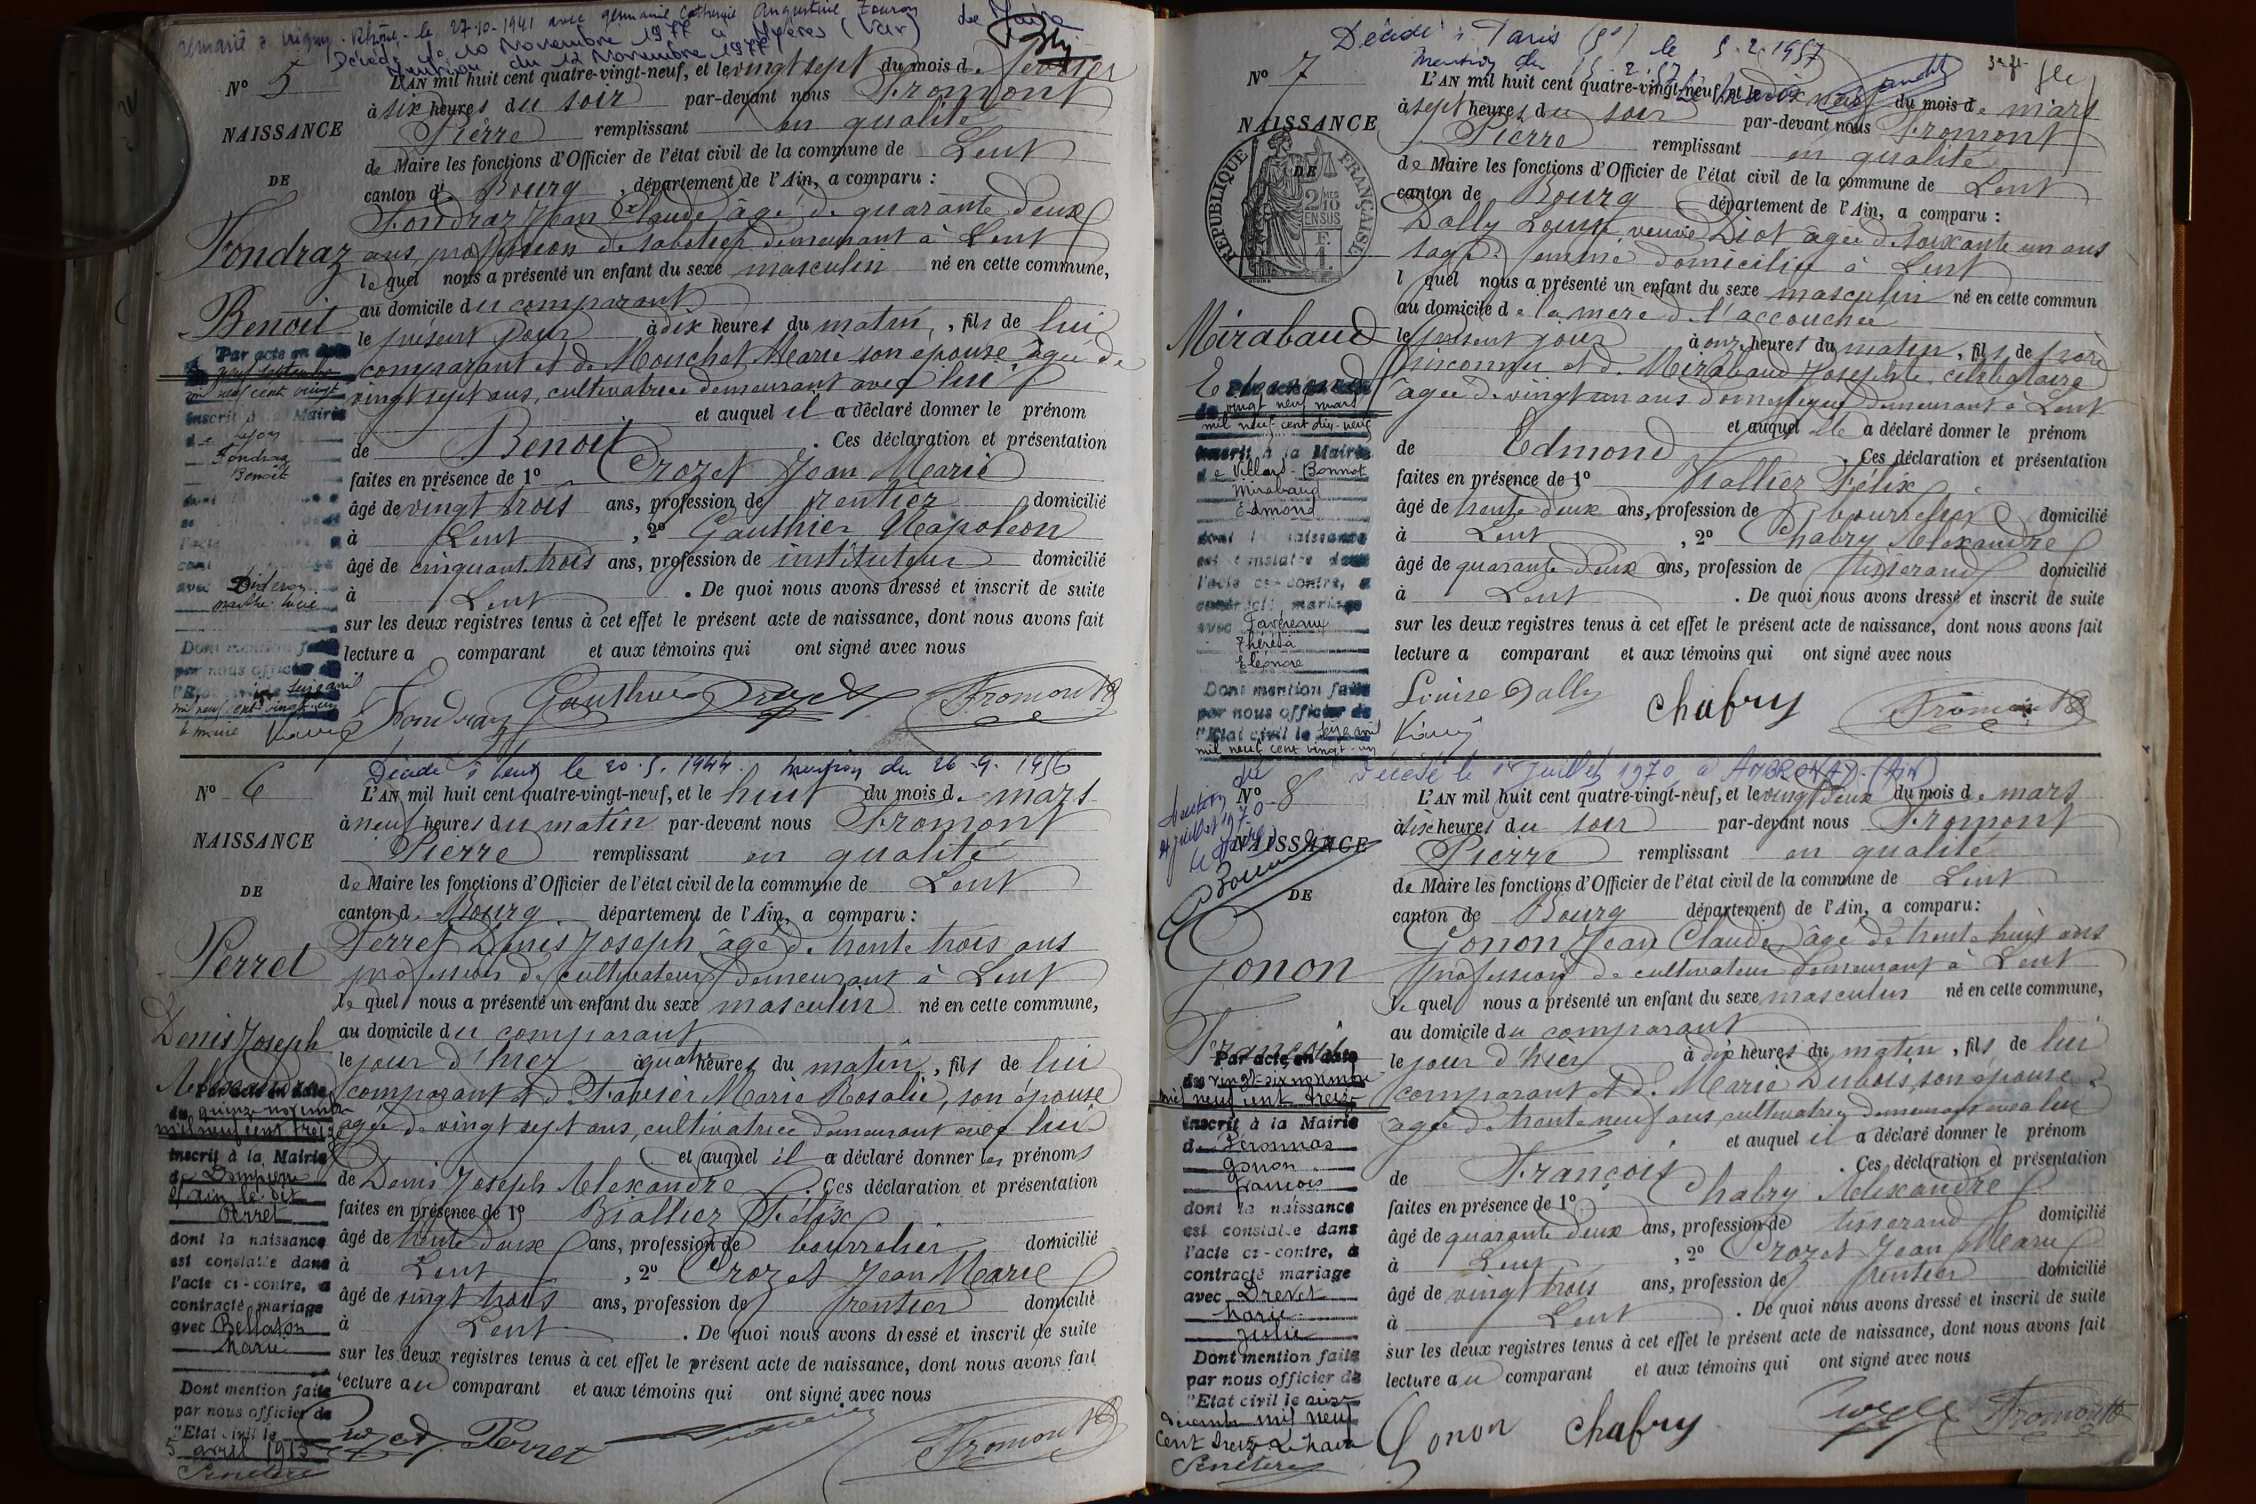 remarié à Vigny-Rhône le 27-10-1941 avec germaine Catherine Augustine
Décédé le 10 Novembre 1977 à Hyères (Var)
Mention du 12 Novembre 1977
Nº 5
NAISSANCE
DE
Fondraz
Benoit
L'AN mil huit cent quatre-vingt-neuf, et le vingt sept du mois de février
à six heures du soir par-devant nous Fromont
Pierre remplissant en qualité
de Maire les fonctions d'Officier de l'état civil de la commune de Lent
canton de Bourg, département de l'Ain, a comparu :
Fondraz Jean Claude âgé de quarante deux
ans, profession de sabotier demeurant à Lent
le quel nous a présenté un enfant du sexe masculin né en cette commune,
au domicile du comparant
le présent jour à dix heures du matin, fils de lui
comparant et de Mouchet Marie son épouse âgée de
vingt sept ans, cultivatrice demeurant avec lui
et auquel il a déclaré donner le prénom
de Benoit. Ces déclaration et présentation
faites en présence de 1º Crozet Jean Marie
âgé de vingt trois ans, profession de rentier domicilié
à Lent, 2º Gauthier Napoléon
âgé de cinquante trois ans, profession de instituteur domicilié
à Lent. De quoi nous avons dressé et inscrit de suite
sur les deux registres tenus à cet effet le présent acte de naissance, dont nous avons fait
lecture a comparant et aux témoins qui ont signé avec nous
Par acte en date
neuf septembre
mil neuf cent vingt
inscrit à la Mairie
de Lyon
Fondraz
Benoît
avec Dideron
Marthe Lucie
Dont mention faite
par nous officier de
l'Etat civil le seize avril
mil neuf cent vingt-un
le maire
Fondraz Gauthier Crozet Fromont
Nº 6
NAISSANCE
DE
Perret
Denis Joseph
Alexandre
Décédé à Lent le 20.5.1944. Mention du 26.9.1956
L'AN mil huit cent quatre-vingt-neuf, et le huit du mois de mars
à neuf heures du matin par-devant nous Fromont
Pierre remplissant en qualité
de Maire les fonctions d'Officier de l'état civil de la commune de Lent
canton de Bourg département de l'Ain, a comparu :
Perret Denis Joseph âgé de trente trois ans
profession de cultivateur demeurant à Lent
le quel nous a présenté un enfant du sexe masculin né en cette commune,
au domicile du comparant
le jour d'hier à quatre heures du matin, fils de lui
comparant et de Favier Marie Rosalie, son épouse
âgée de vingt sept ans, cultivatrice demeurant avec lui
et auquel il a déclaré donner les prénoms
de Denis Joseph Alexandre. Ces déclaration et présentation
faites en présence de 1º Vialliez Félix
âgé de trente deux ans, profession de bourrelier domicilié
à Lent, 2º Crozet Jean Marie
âgé de vingt trois ans, profession de rentier domicilié
à Lent. De quoi nous avons dressé et inscrit de suite
sur les deux registres tenus à cet effet le présent acte de naissance, dont nous avons fait
lecture au comparant et aux témoins qui ont signé avec nous
Par acte en date
du quinze novembre
mil neuf cent treize
inscrit à la Mairie
de Dompierre
s/ Ain le dit
Perret
dont la naissance
est constatée dans
l'acte ci-contre, a
contracté mariage
avec Bellaton
Marie
Dont mention faite
par nous officier de
l'Etat civil le
5 avril 1915
Crozet Perret Fromont
Décédé à Paris (9e) le 5.2.1957
Nº 7
NAISSANCE
DE
REPUBLIQUE FRANÇAISE
Mirabaud
Edmond
L'AN mil huit cent quatre-vingt-neuf, et le dix neuf du mois de mars
à sept heures du soir par-devant nous Fromont
Pierre remplissant en qualité
de Maire les fonctions d'Officier de l'état civil de la commune de Lent
canton de Bourg département de l'Ain, a comparu :
Dally Louise veuve Diot âgée de soixante un ans
sage-femme domiciliée à Lent
l quel nous a présenté un enfant du sexe masculin né en cette commun
au domicile de la mère de l'accouchée
le présent jour à onze heures du matin, fils de père
inconnu et de Mirabaud Josephte célibataire
âgée de vingt un ans domestique demeurant à Lent
et auquel elle a déclaré donner le prénom
de Edmond. Ces déclaration et présentation
faites en présence de 1º Vialliez Félix
âgé de trente deux ans, profession de bourrelier domicilié
à Lent, 2º Chabry Alexandre
âgé de quarante deux ans, profession de tisserand domicilié
à Lent. De quoi nous avons dressé et inscrit de suite
sur les deux registres tenus à cet effet le présent acte de naissance, dont nous avons fait
lecture a comparant et aux témoins qui ont signé avec nous
Par acte en date
du vingt neuf mars
mil neuf cent dix-neuf
inscrit à la Mairie
de Villard-Bonnot
Mirabaud
Edmond
dont la naissance
est constatée dans
l'acte ci-contre, a
contracté mariage
avec Favereaux
Thérésa
Eléonore
Dont mention faite
par nous officier de
l'Etat civil le seize avril
mil neuf cent vingt-un
Louise Dally Chabry Fromont
Nº 8
NAISSANCE
DE
Gonon
François
Décédé le 1er Juillet 1970 à AMBRONAY (Ain)
L'AN mil huit cent quatre-vingt-neuf, et le vingt deux du mois de mars
à six heures du soir par-devant nous Fromont
Pierre remplissant en qualité
de Maire les fonctions d'Officier de l'état civil de la commune de Lent
canton de Bourg département de l'Ain, a comparu :
Gonon Jean Claude âgé de trente huit ans
profession de cultivateur demeurant à Lent
le quel nous a présenté un enfant du sexe masculin né en cette commune,
au domicile du comparant
le jour d'hier à dix heures du matin, fils de lui
comparant et de Marie Dubois, son épouse
âgée de trente neuf ans, cultivatrice demeurant avec lui
et auquel il a déclaré donner le prénom
de François. Ces déclaration et présentation
faites en présence de 1º Chabry Alexandre
âgé de quarante deux ans, profession de tisserand domicilié
à Lent, 2º Crozet Jean Marie
âgé de vingt trois ans, profession de rentier domicilié
à Lent. De quoi nous avons dressé et inscrit de suite
sur les deux registres tenus à cet effet le présent acte de naissance, dont nous avons fait
lecture au comparant et aux témoins qui ont signé avec nous
Par acte en date
du vingt-six novembre
mil neuf cent treize
inscrit à la Mairie
de Péronnas
Gonon
François
dont la naissance
est constatée dans
l'acte ci-contre, a
contracté mariage
avec Drevet
Marie
Julie
Dont mention faite
par nous officier de
l'Etat civil le
décembre mil neuf
cent treize Le Maire
Gonon Chabry Crozet Fromont